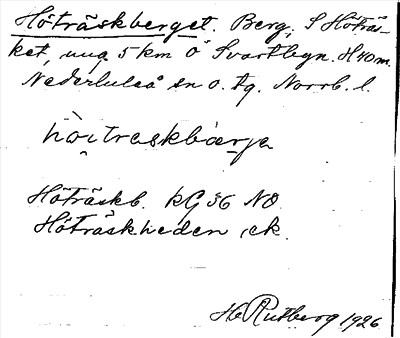 Höträskberget. Berg, S Höträs-
ket, ung. 5 km Ö Svartbyn. H 40 m.
Nederluleå sn o. tg. Norrb. l.
höitraskbärja
Höträskb. kG 56 NO
Höträskheden, ek.
H Rutberg 1926